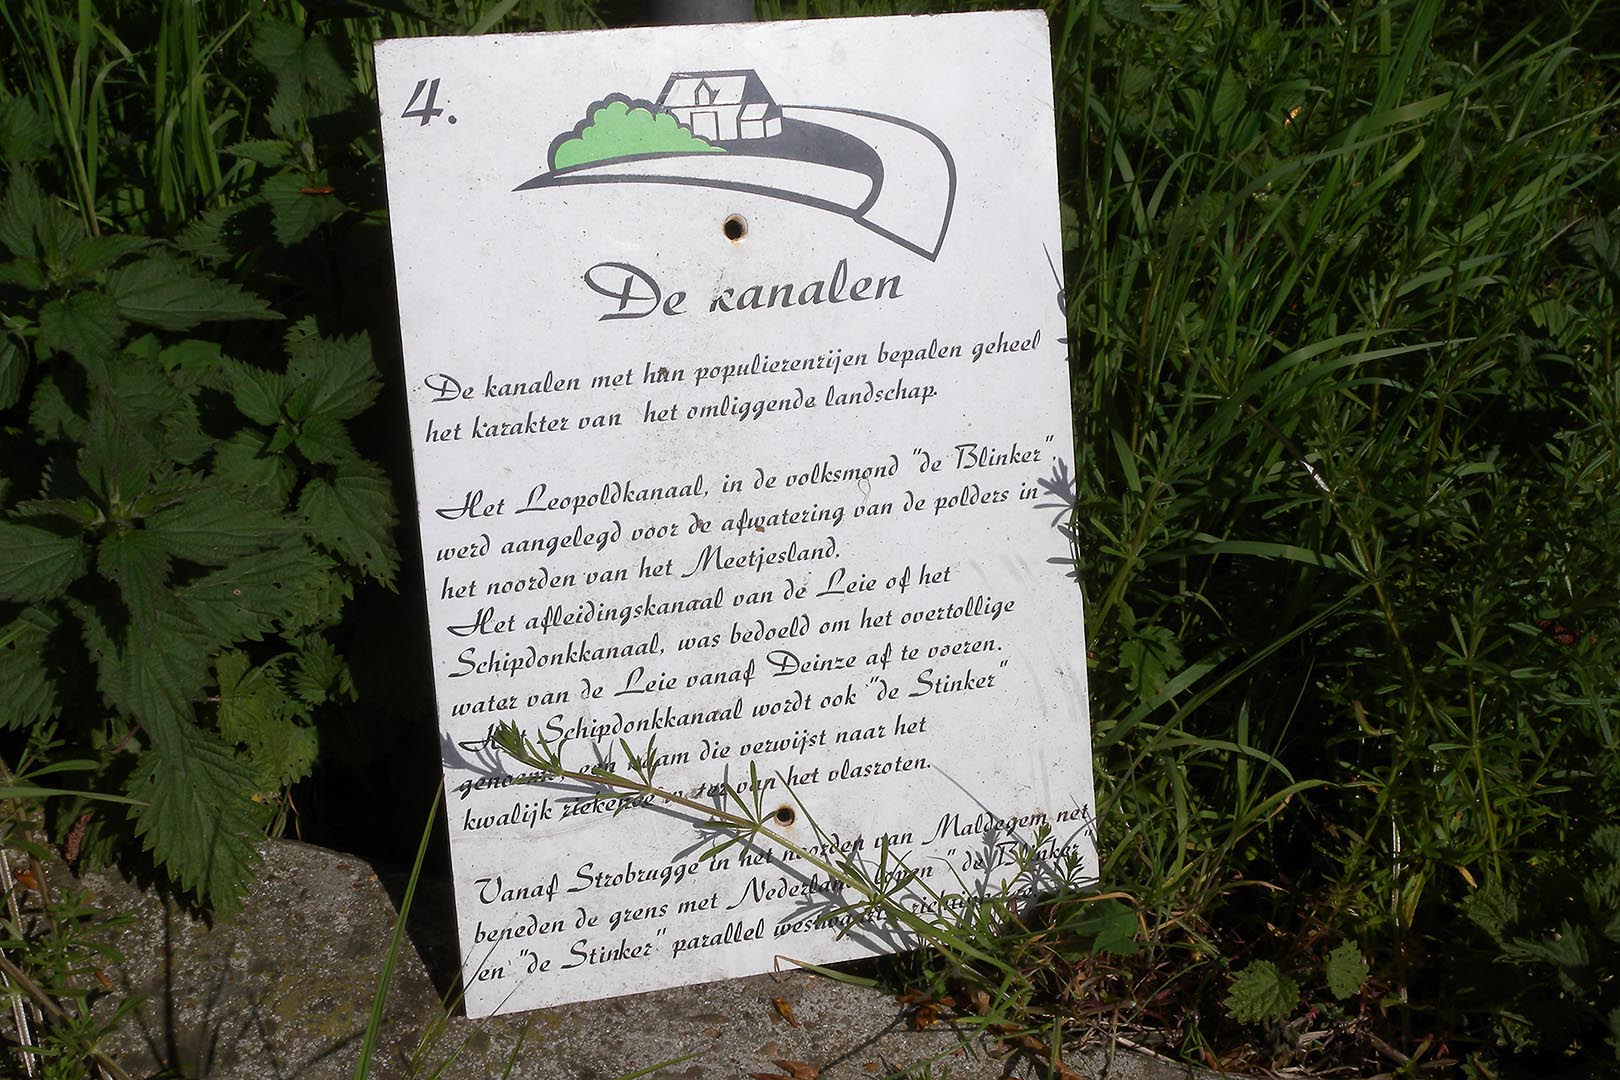 4.
De kanalen
De kanalen met hun populierenrijen bepalen geheel
het karakter van het omliggende landschap.
Het Leopoldkanaal, in de volksmond "de Blinker",
werd aangelegd voor de afwatering van de polders in
het noorden van het Meetjesland.
Het afleidingskanaal van de Leie of het
Schipdonkkanaal, was bedoeld om het overtollige
water van de Leie vanaf Deinze af te voeren.
Het Schipdonkkanaal wordt ook "de Stinker"
genoemd, een naam die verwijst naar het
kwalijk riekende water van het vlasroten.
Vanaf Strobrugge in het noorden van Maldegem net
beneden de grens met Nederland lopen "de Blinker"
en "de Stinker" parallel westwaarts richting